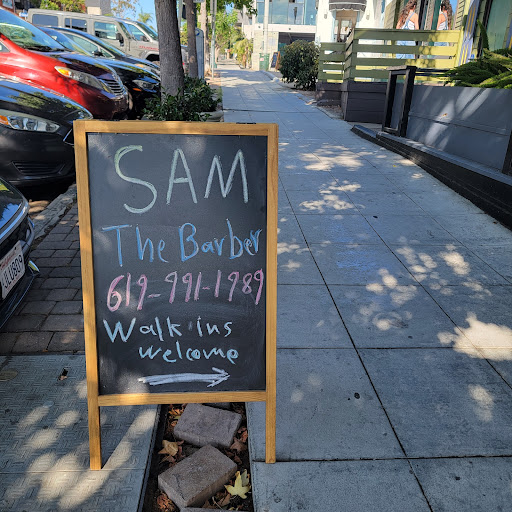 SAM
The Barber
619-991-1989
Walk ins
welcome